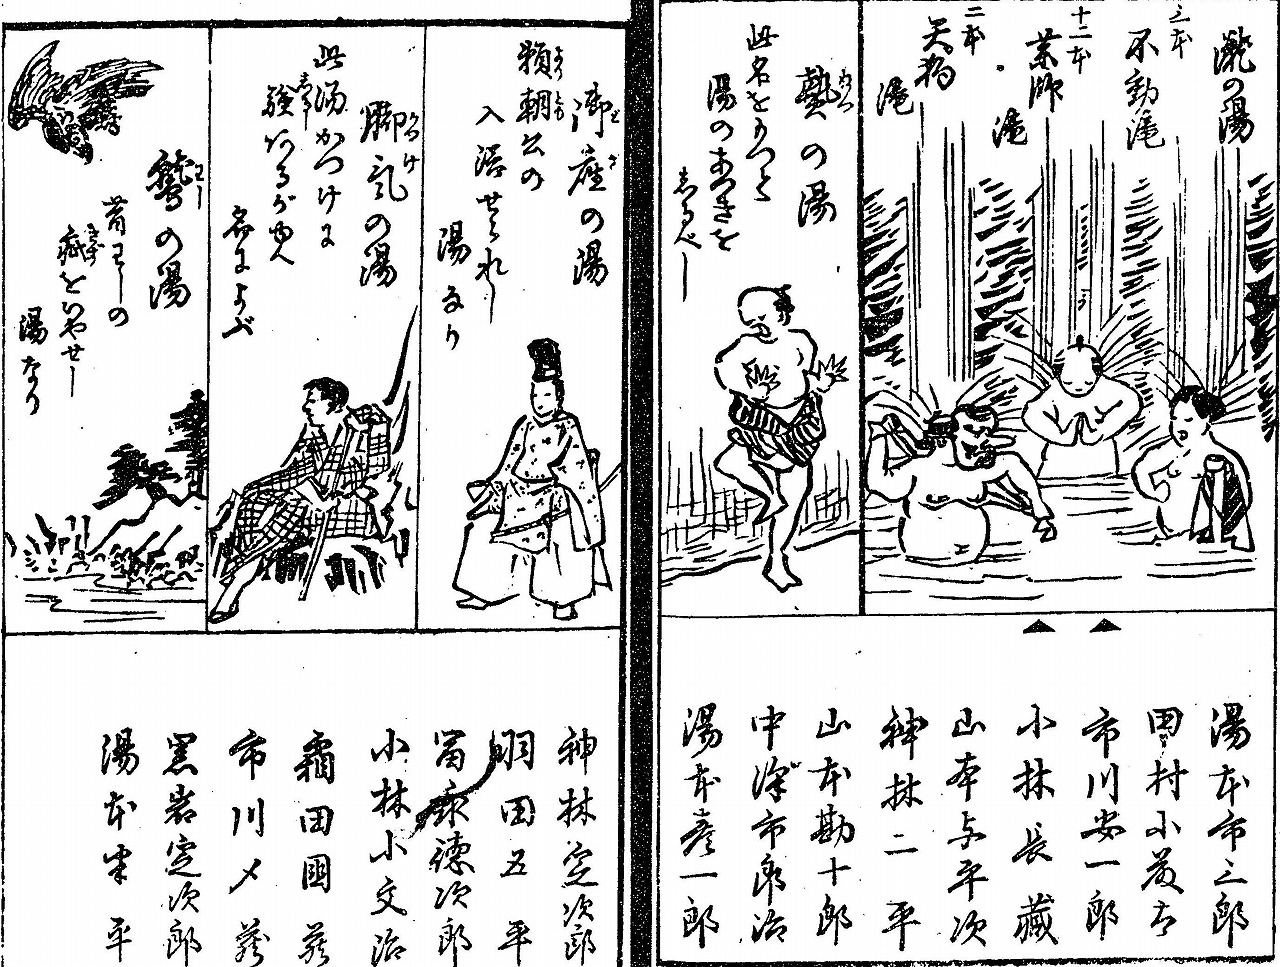 瀧の湯
三本
不動滝
十二本
薬師
滝
二本
天狗
滝
熱の湯
あつ
此名をもつて
湯のあつきを
しるべし
御座の湯
ござ
頼朝公の
よりとも
入浴せられし
湯なり
脚気の湯
かつけ
此湯かつけに
験あるがゆへ
名によぶ
鷲の湯
わし
昔わしの
疵をいやせし
きず
湯なり
湯本市三郎
田村小
市川安一郎
小林長藏
山本与平次
神林二平
山本勘十郎
中澤市郎治
湯本彦一郎
神林定次郎
羽田五平
富永徳次郎
小林小文治
霜田国蔵
市川〆蔵
黒岩定次郎
湯本半平